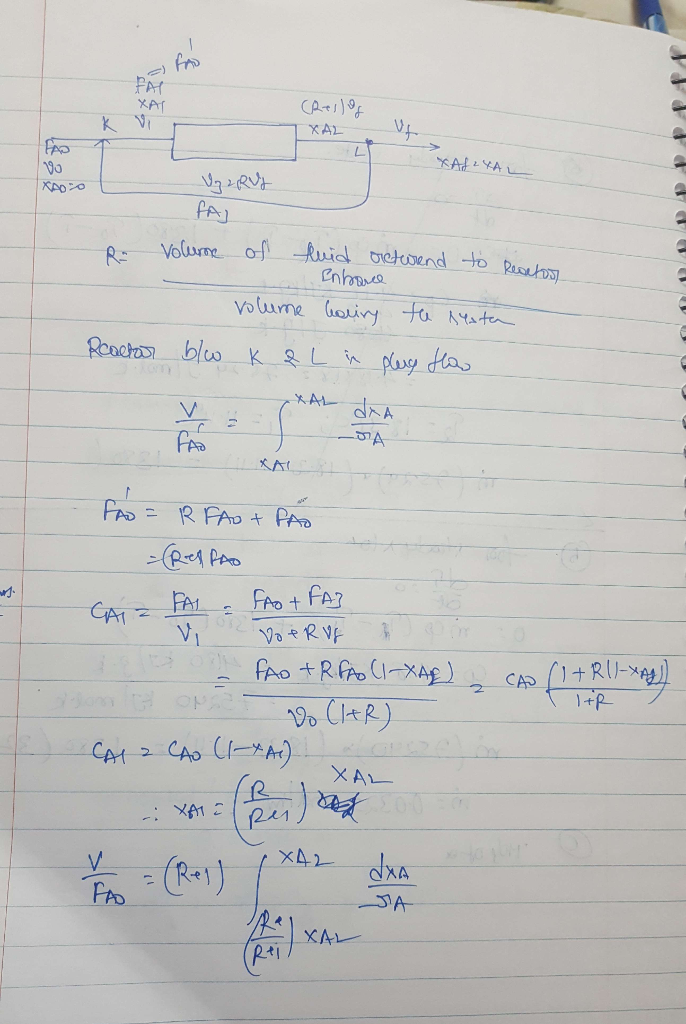 => FA0'
FA1
XA1
K V1
(R+1)Vf
XA2
Vf
L
XAf = XA2
FA0
V0
XA0=0
V3 = RVf
FA3
R = Volume of fluid returned to Reactor Entrance
volume leaving the system
Reactor b/w K & L is plug flow
V / FA0' = ∫ XA1 XA2 dxA / -rA
FA0' = R FA0 + FA0
= (R+1) FA0
CA1 = FA1 / V1 = FA0 + FA3 / V0 + R Vf
= FA0 + R FA0 (1-XAf) / V0 (1+R) = CA0 (1 + R(1-XAf) / 1+R)
CA1 = CA0 (1-XA1)
∴ XA1 = (R / R+1) XA2
V / FA0 = (R+1) ∫ (R / R+1) XA2 XA2 dxA / -rA